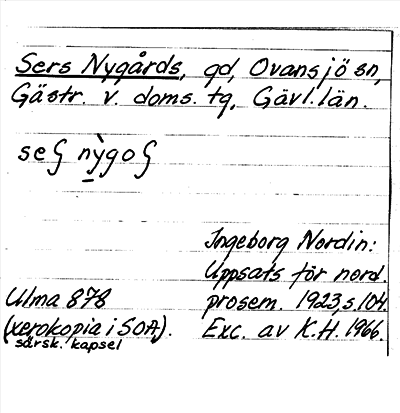 Sers Nygårds, gd, Ovansjö sn,
Gästr. v. doms. tg, Gävl. län.
seʃ nỳgoʃ
Ingeborg Nordin:
Uppsats för nord.
Ulma 878 prosem. 1923, s. 104.
(xerokopia i SOA). Exc. av K.H. 1966.
särsk. kapsel